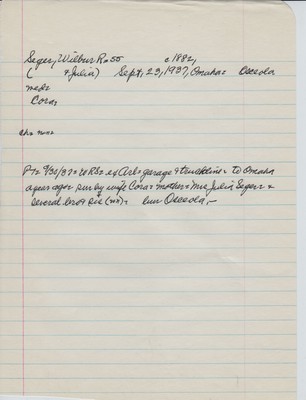 Seger, Wilbur R. 55 c1882,
( & Julia) Sept, 29, 1937, Omaha: Osceola
med:
Cora:
ch: nn:
P7: 9/30/37: to RS: ex Arl: garage & truckline: to Omaha
a year ago: sur by wife Cora: mother: Mrs Julia Seger: &
several bro & sis (nn): bur Osceola,—